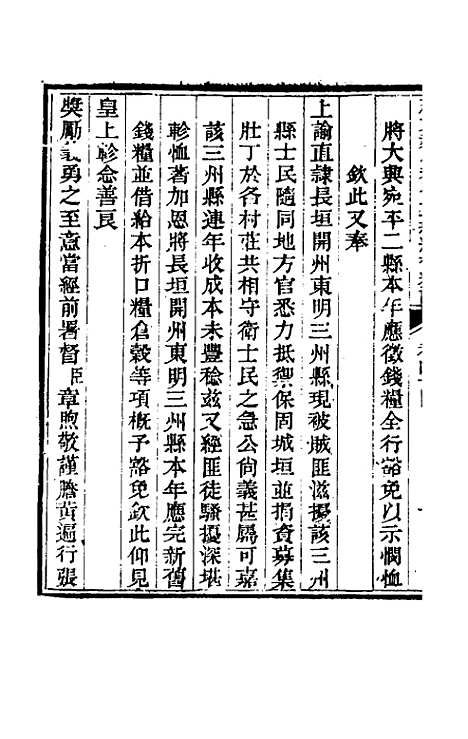 將大興宛平二縣本年應徵錢糧全行豁免以示憫恤
欽此又奉
上諭直隸長垣開州東明三州縣現被賊匪滋擾該三州
縣士民隨同地方官悉力抵禦保固城垣並捐資募集
壯丁於各村莊共相守衛士民之急公尙義甚屬可嘉
該三州縣連年收成本未豐稔兹又經匪徒騷擾深堪
軫恤著加恩將長垣開州東明三州縣本年應完新舊
錢糧並借給本折口糧倉穀等項概予豁免欽此仰見
皇上軫念善良
獎勵義勇之至意當經前署督臣章煦敬謹謄黃遍行張